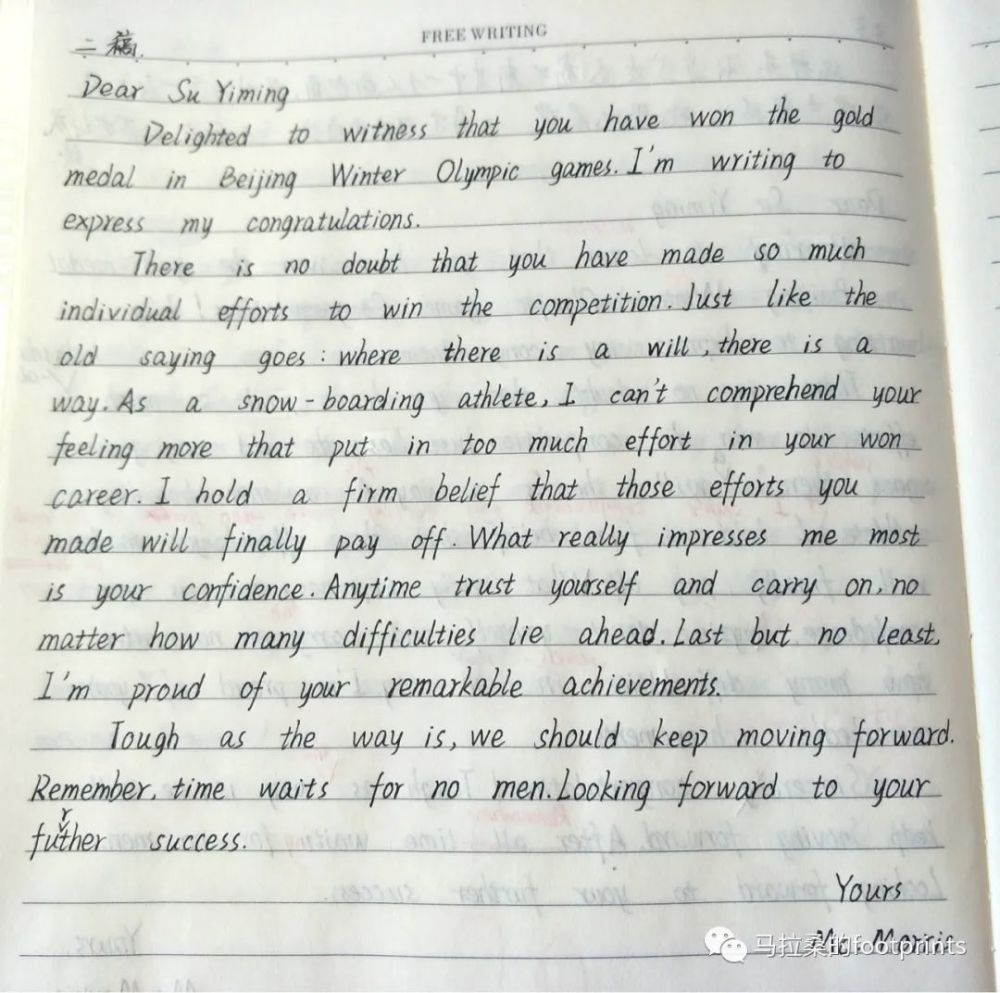 FREE WRITING
二稿.
Dear Su Yiming
Delighted to witness that you have won the gold
medal in Beijing Winter Olympic games. I'm writing to
express my congratulations.
There is no doubt that you have made so much
individual efforts to win the competition. Just like the
old saying goes: where there is a will, there is a
way. As a snow-boarding athlete, I can't comprehend your
feeling more that put in too much effort in your won
career. I hold a firm belief that those efforts you
made will finally pay off. What really impresses me most
is your confidence. Anytime trust yourself and carry on, no
matter how many difficulties lie ahead. Last but no least,
I'm proud of your remarkable achievements.
Tough as the way is, we should keep moving forward.
Remember, time waits for no men. Looking forward to your
further success.
Yours
马拉桑的footprints